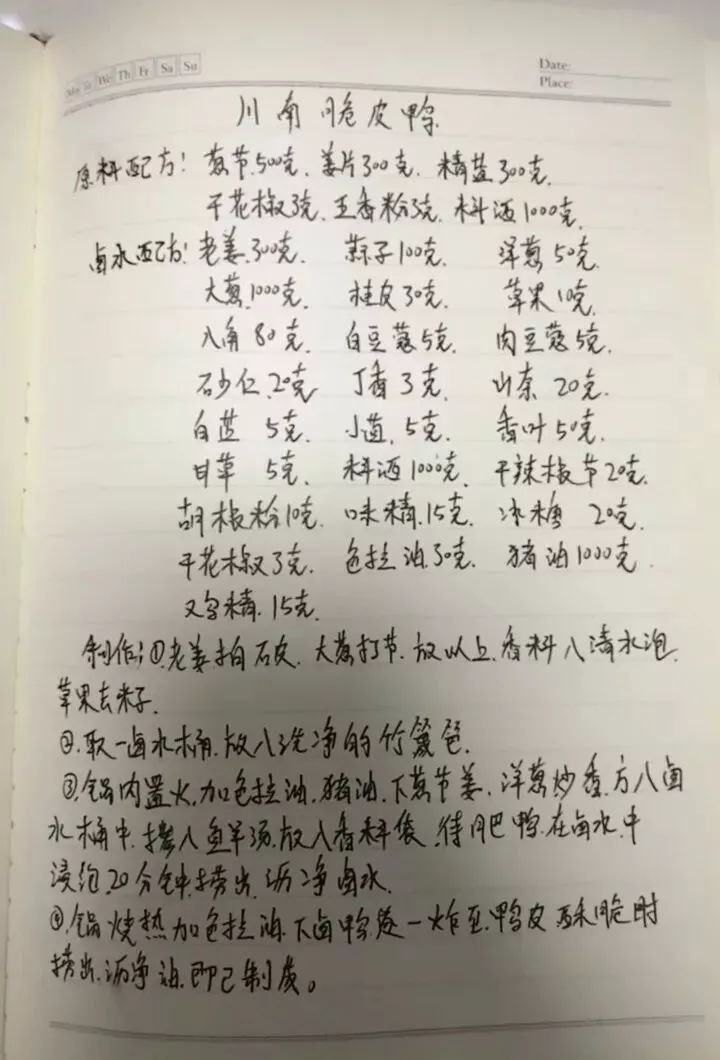 Mo Tu We Th Fr Sa Su
Date:
Place:
川南脆皮鸭
原料配方：葱节.500克、姜片300克、精盐300克.
干花椒3克.五香粉3克.料酒1000克.
卤水配方：老姜.300克. 蒜子100克. 洋葱50克.
大葱.1000克. 桂皮30克. 草果10克.
八角80克. 白豆蔻5克. 肉豆蔻5克.
石少仁.20克 丁香3克. 山奈20克.
白芷 5克. 小茴.5克. 香叶50克.
甘草 5克. 料酒1000克. 干辣椒节20克.
胡椒粉10克. 味精.15克. 冰糖 20克.
干花椒3克. 色拉油.30克. 猪油1000克
又鸟精.15克.
制作：①老姜拍石皮.大葱打节.放以上.香料入清水泡.
草果去籽.
②.取一卤水桶.放入洗净的竹篾笆.
③.锅内置火.加色拉油.猪油.下葱节姜.洋葱炒香.方入卤
水桶中.掺入鱼羊汤.放入香料袋.待肥鸭.在卤水.中
浸泡.20分钟.捞出.沥净卤水.
④.锅烧热加色拉油.下卤鸭逐一炸至.鸭皮酥脆时
捞出.沥净油.即已制成。